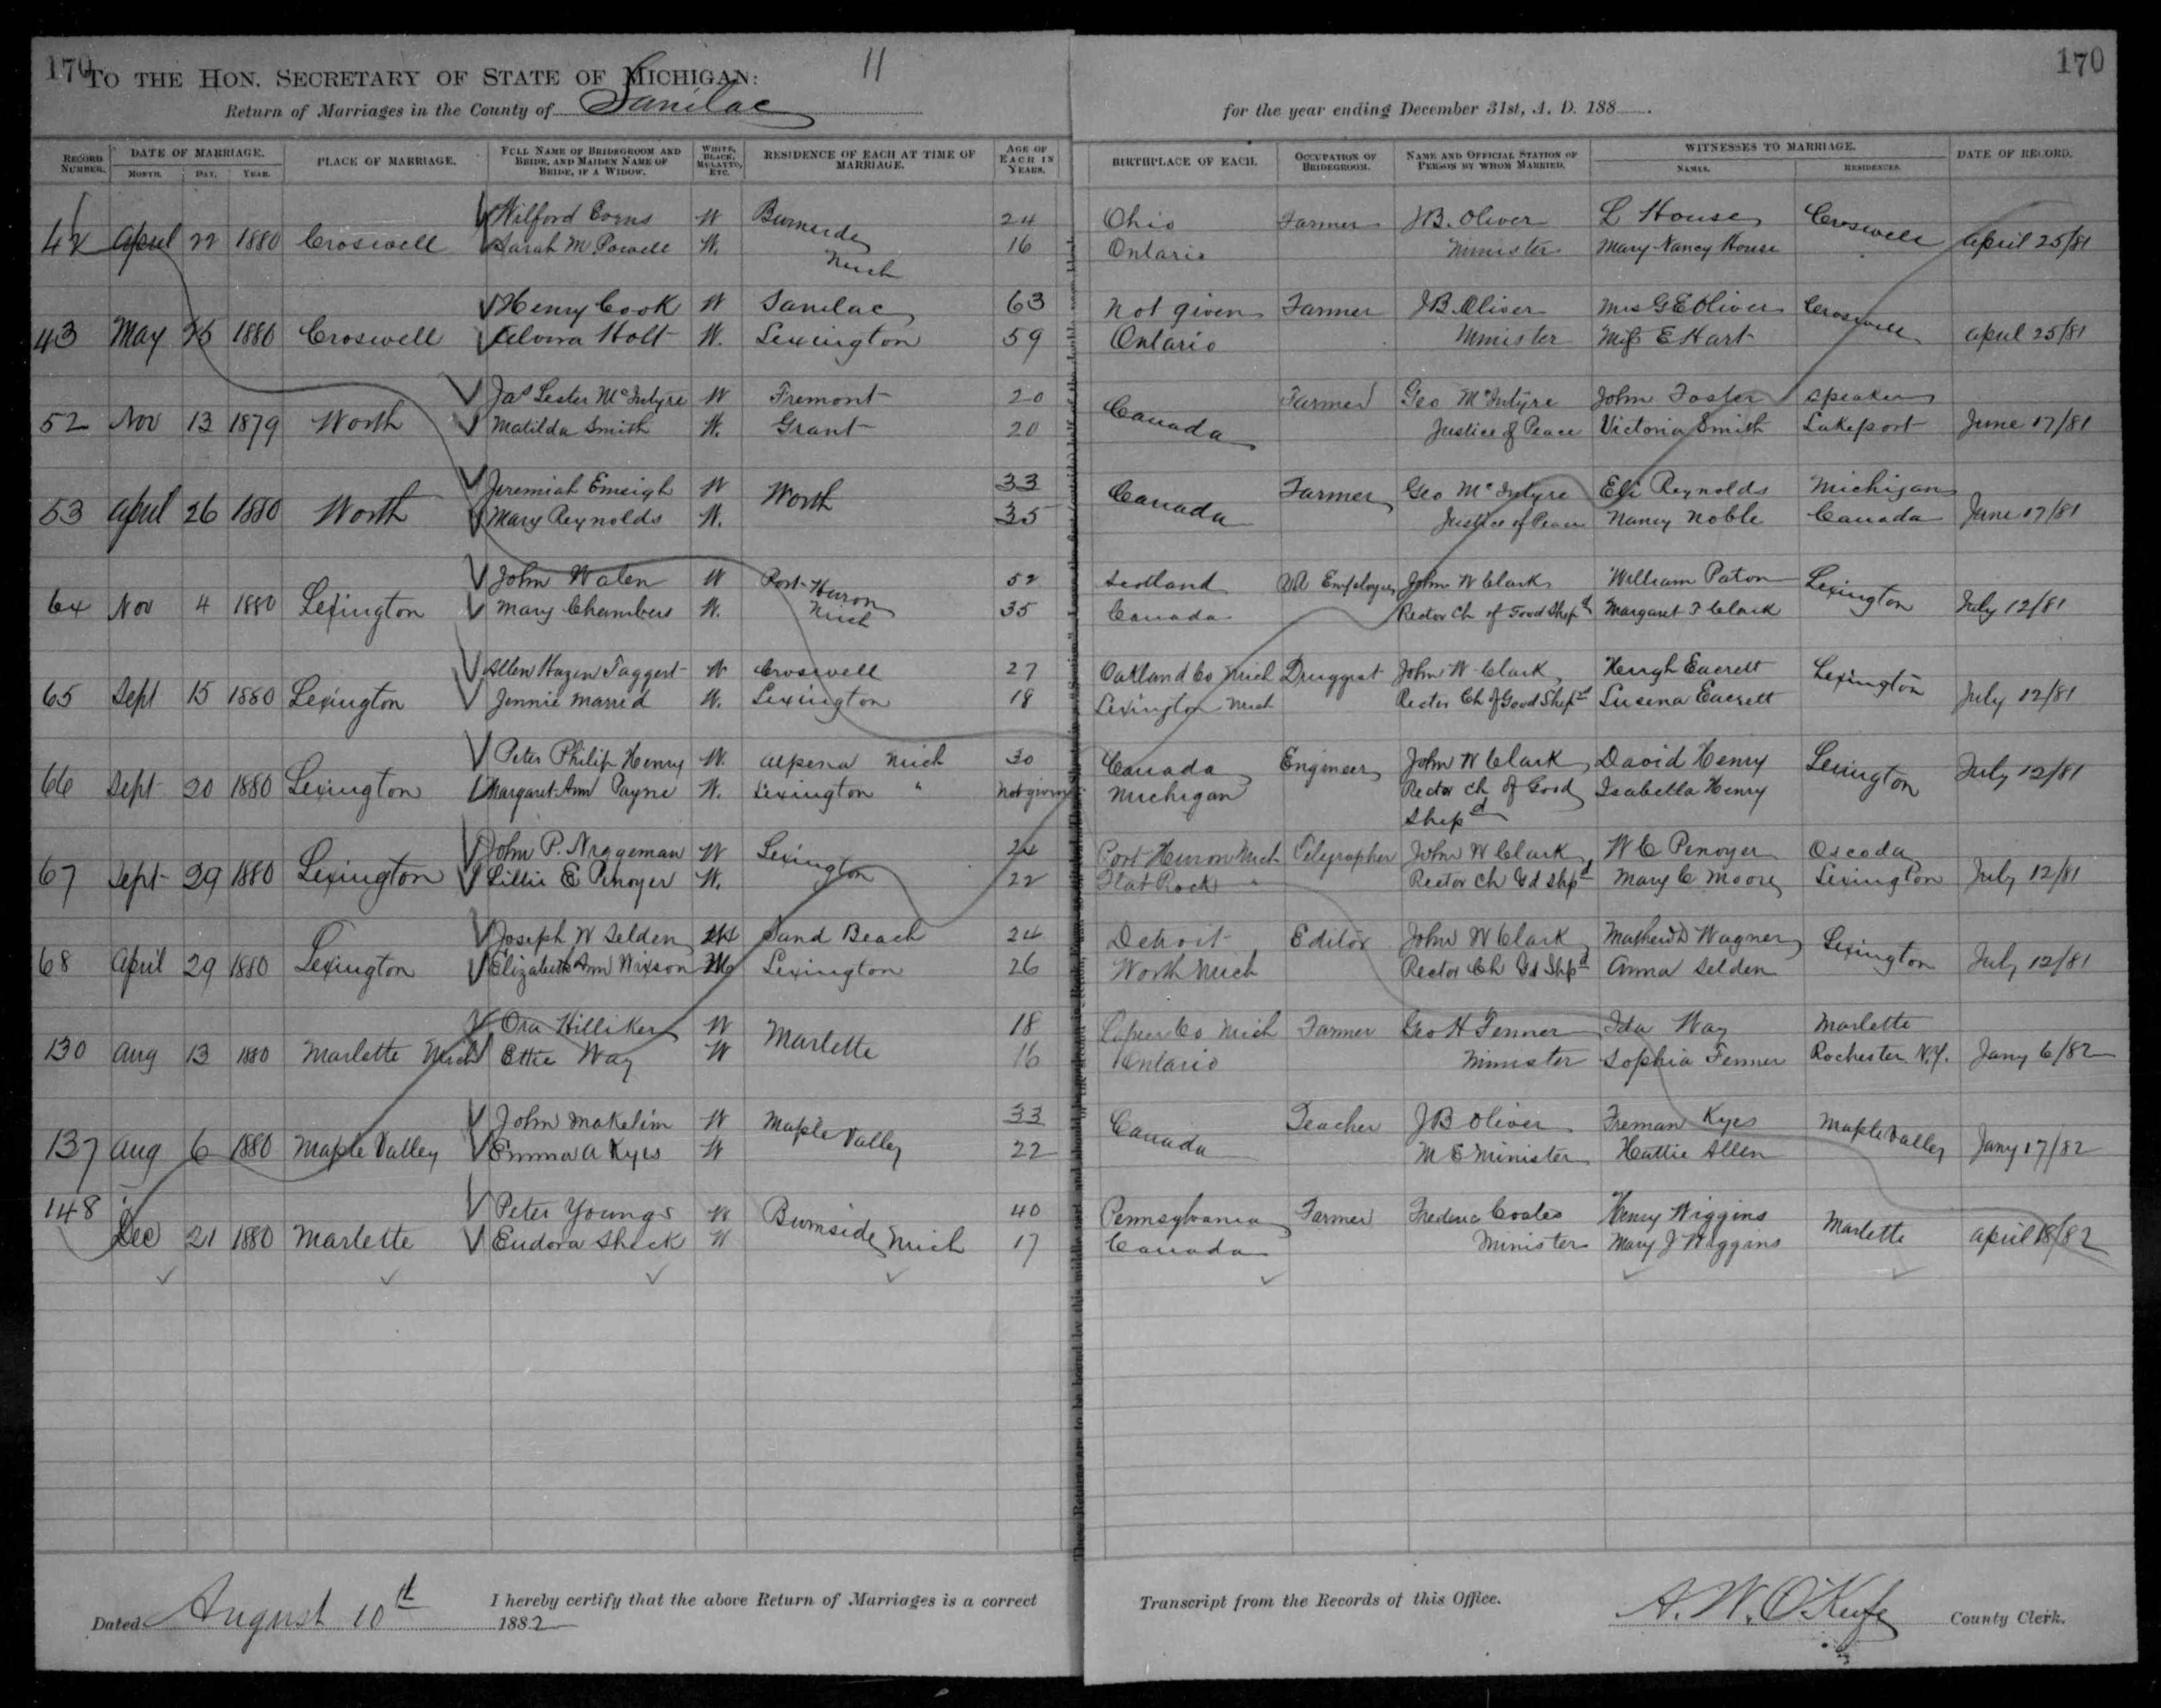 170 TO THE HON. SECRETARY OF STATE OF MICHIGAN: 11 170
Return of Marriages in the County of Sanilac for the year ending December 31st, A. D. 188
RECORD NUMBER. DATE OF MARRIAGE. MONTH. DAY. YEAR. PLACE OF MARRIAGE. FULL NAME OF BRIDEGROOM AND BRIDE, AND MAIDEN NAME OF BRIDE, IF A WIDOW. WHITE, BLACK, MULATTO, ETC. RESIDENCE OF EACH AT TIME OF MARRIAGE. AGE OF EACH IN YEARS. BIRTHPLACE OF EACH. OCCUPATION OF BRIDEGROOM. NAME AND OFFICIAL STATION OF PERSON BY WHOM MARRIED. WITNESSES TO MARRIAGE. NAMES. RESIDENCES. DATE OF RECORD.
Wilford W 24 Ohio Farmer J B. Oliver L House Croswell
42 April 22 1880 Croswell Sarah M Powell W. Mich 16 Ontario Minister Mary Nancy House April 25/81
Henry Cook W Sanilac 63 not given Farmer J B. Oliver Mrs G E Oliver Croswell
43 May 25 1880 Croswell Alvira Holt W. Lexington 59 Ontario Minister Miss E Hart April 25/81
Jas Lester McIntyre W Fremont 20 Canada Farmer Geo McIntyre John Foster Speaker
52 Nov 13 1879 Worth Matilda Smith W. Grant 20 Justice of Peace Victoria Smith Lakeport June 17/81
Jeremiah Emeigh W Worth 33 Canada Farmer Geo McIntyre Eli Reynolds Michigan
53 April 26 1880 Worth Mary Reynolds W. 35 Justice of Peace Nancy Noble Canada June 17/81
John Walen W Port Huron 52 Scotland Employee John W Clark William Paton Lexington
64 Nov 4 1880 Lexington Mary Chambers W. Mich 35 Canada Rector Ch of Good Shepd Margaret T Clark July 12/81
Allen Hazen Taggert W Croswell 27 Oakland Co Mich Druggist John W Clark Hugh Everett Lexington
65 Sept 15 1880 Lexington Jennie W. Lexington 18 Lexington Mich Rector Ch of Good Shepd Lusena Everett July 12/81
Peter Philip Henry W. Alpena Mich 30 Canada Engineer John W Clark David Henry Lexington
66 Sept 20 1880 Lexington Margaret Ann Payne W. Lexington " Not given Michigan Rector Ch of Good Isabella Henry July 12/81
Shepd
John P. Niggeman W Lexington 24 Port Huron Mich Telegrapher John W Clark W C Penoyer Oscoda
67 Sept 29 1880 Lexington Lillie E Penoyer W. 22 Flat Rock " Rector Ch Gd Shpd Mary C Moore Lexington July 12/81
Joseph W Selden Sand Beach 24 Detroit Editor John W Clark Wagner Lexington
68 April 29 1880 Lexington Elizabeth Ann Wixson Lexington 26 Worth Mich Rector Ch Gd Shpd Anna Selden July 12/81
Ora Hilliker W Marlette 18 Lapeer Co Mich Farmer Geo H Fenner Ida Way Marlette
130 Aug 13 1880 Marlette Mich Ettie Way W 16 Ontario Minister Sophia Fenner Rochester N.Y. Jany 6/82
John Makelim W Maple Valley 33 Canada Teacher J B Oliver Freman Kyes Maple Valley
137 Aug 6 1880 Maple Valley Emma A Kyes W 22 M E Minister Hattie Allen Jany 17/82
148 Peter Youngs W Burnside Mich 40 Pennsylvania Farmer Frederic Coates Henry Wiggins Marlette
Dec 21 1880 Marlette Eudora Sheck W 17 Canada Minister Mary J Wiggins April 18/82
Dated August 10th 1882 I hereby certify that the above Return of Marriages is a correct Transcript from the Records of this Office. A. W. O'Keefe County Clerk.